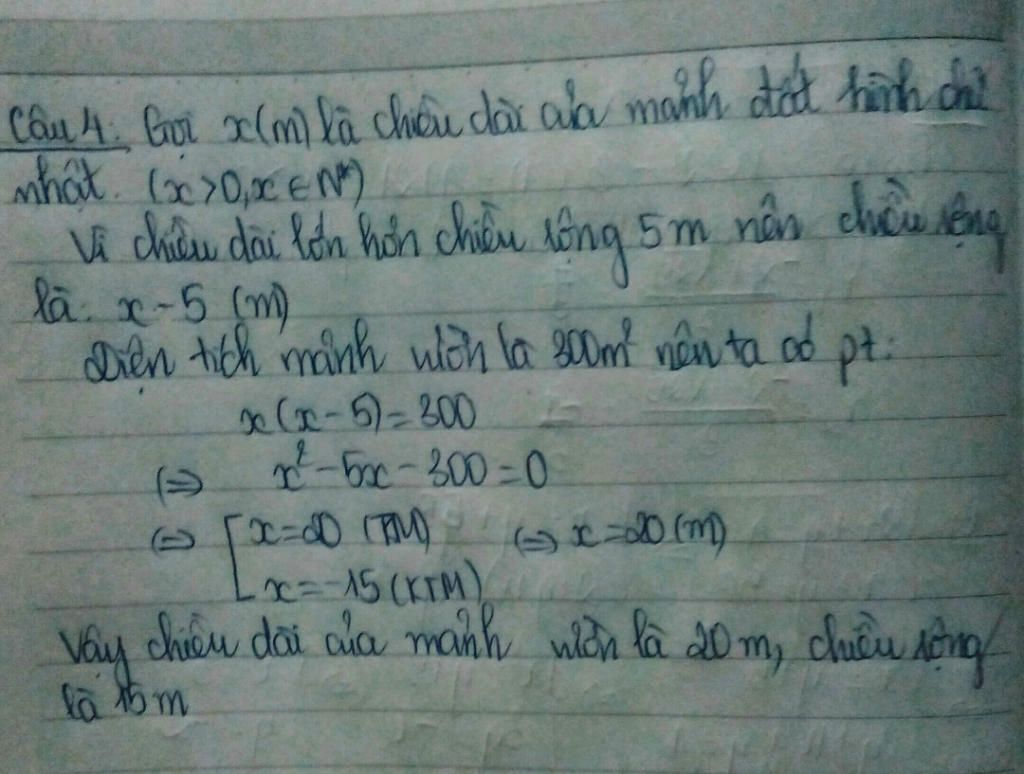 Câu 4: Gọi x(m) là chiều dài của mảnh đất hình chữ
nhật. (x>0, x ∈ N*)
Vì chiều dài lớn hơn chiều rộng 5m nên chiều rộng
là: x - 5 (m)
Diện tích mảnh vườn là 300m² nên ta có pt:
x(x - 5) = 300
(=) x² - 5x - 300 = 0
(=) [ x = 20 (TM) (=) x = 20 (m)
x = -15 (KTM)
Vậy chiều dài của mảnh vườn là 20m, chiều rộng
là 15m